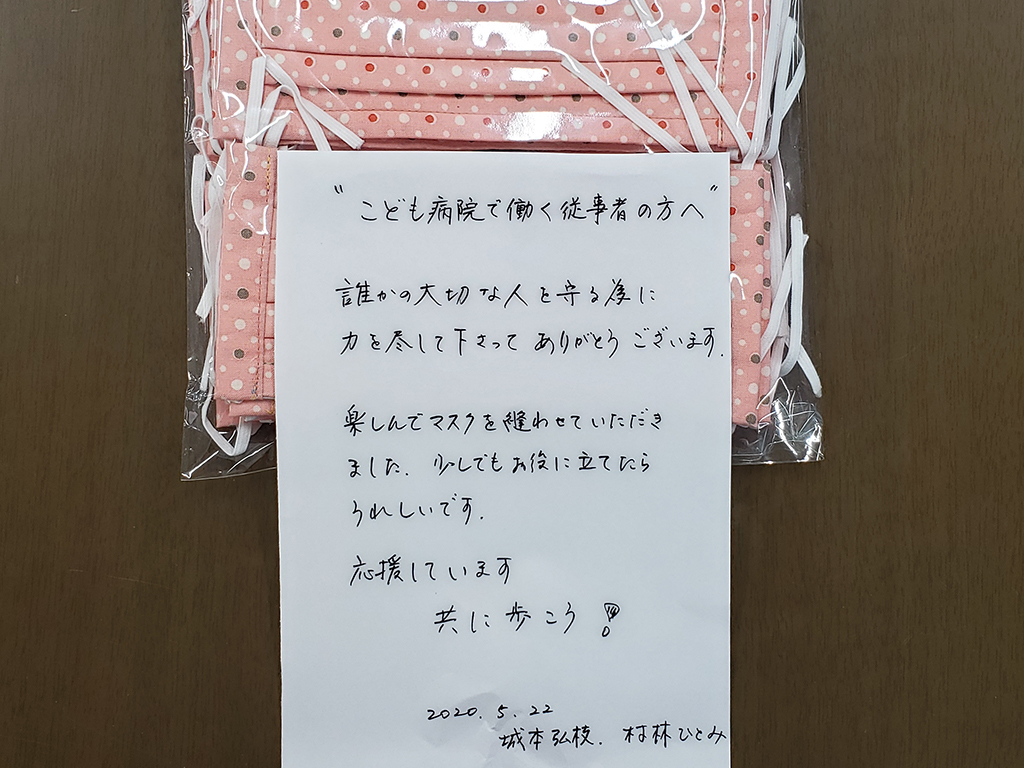 "こども病院で働く従事者の方へ"
誰かの大切な人を守る為に
力を尽して下さって ありがとうございます.
楽しんでマスクを縫わせていただき
ました. 少しでもお役に立てたら
うれしいです.
応援しています
共に歩こう!
2020. 5. 22
城本弘枝. 村林ひとみ